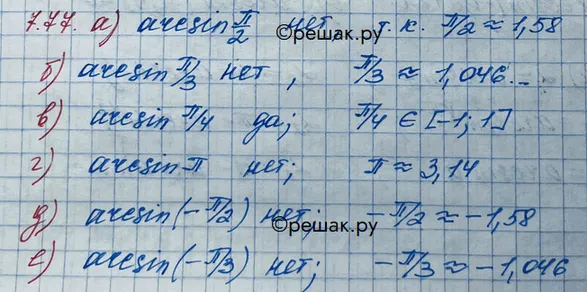 7.77. а) arcsin π/2 нет, т.к. π/2 ≈ 1,58
©решак.ру
б) arcsin π/3 нет, π/3 ≈ 1,046...
в) arcsin π/4 да; π/4 ∈ [-1; 1]
г) arcsin π нет; π ≈ 3,14
д) arcsin(-π/2) нет; -π/2 ≈ -1,58
©решак.ру
е) arcsin(-π/3) нет; -π/3 ≈ -1,046